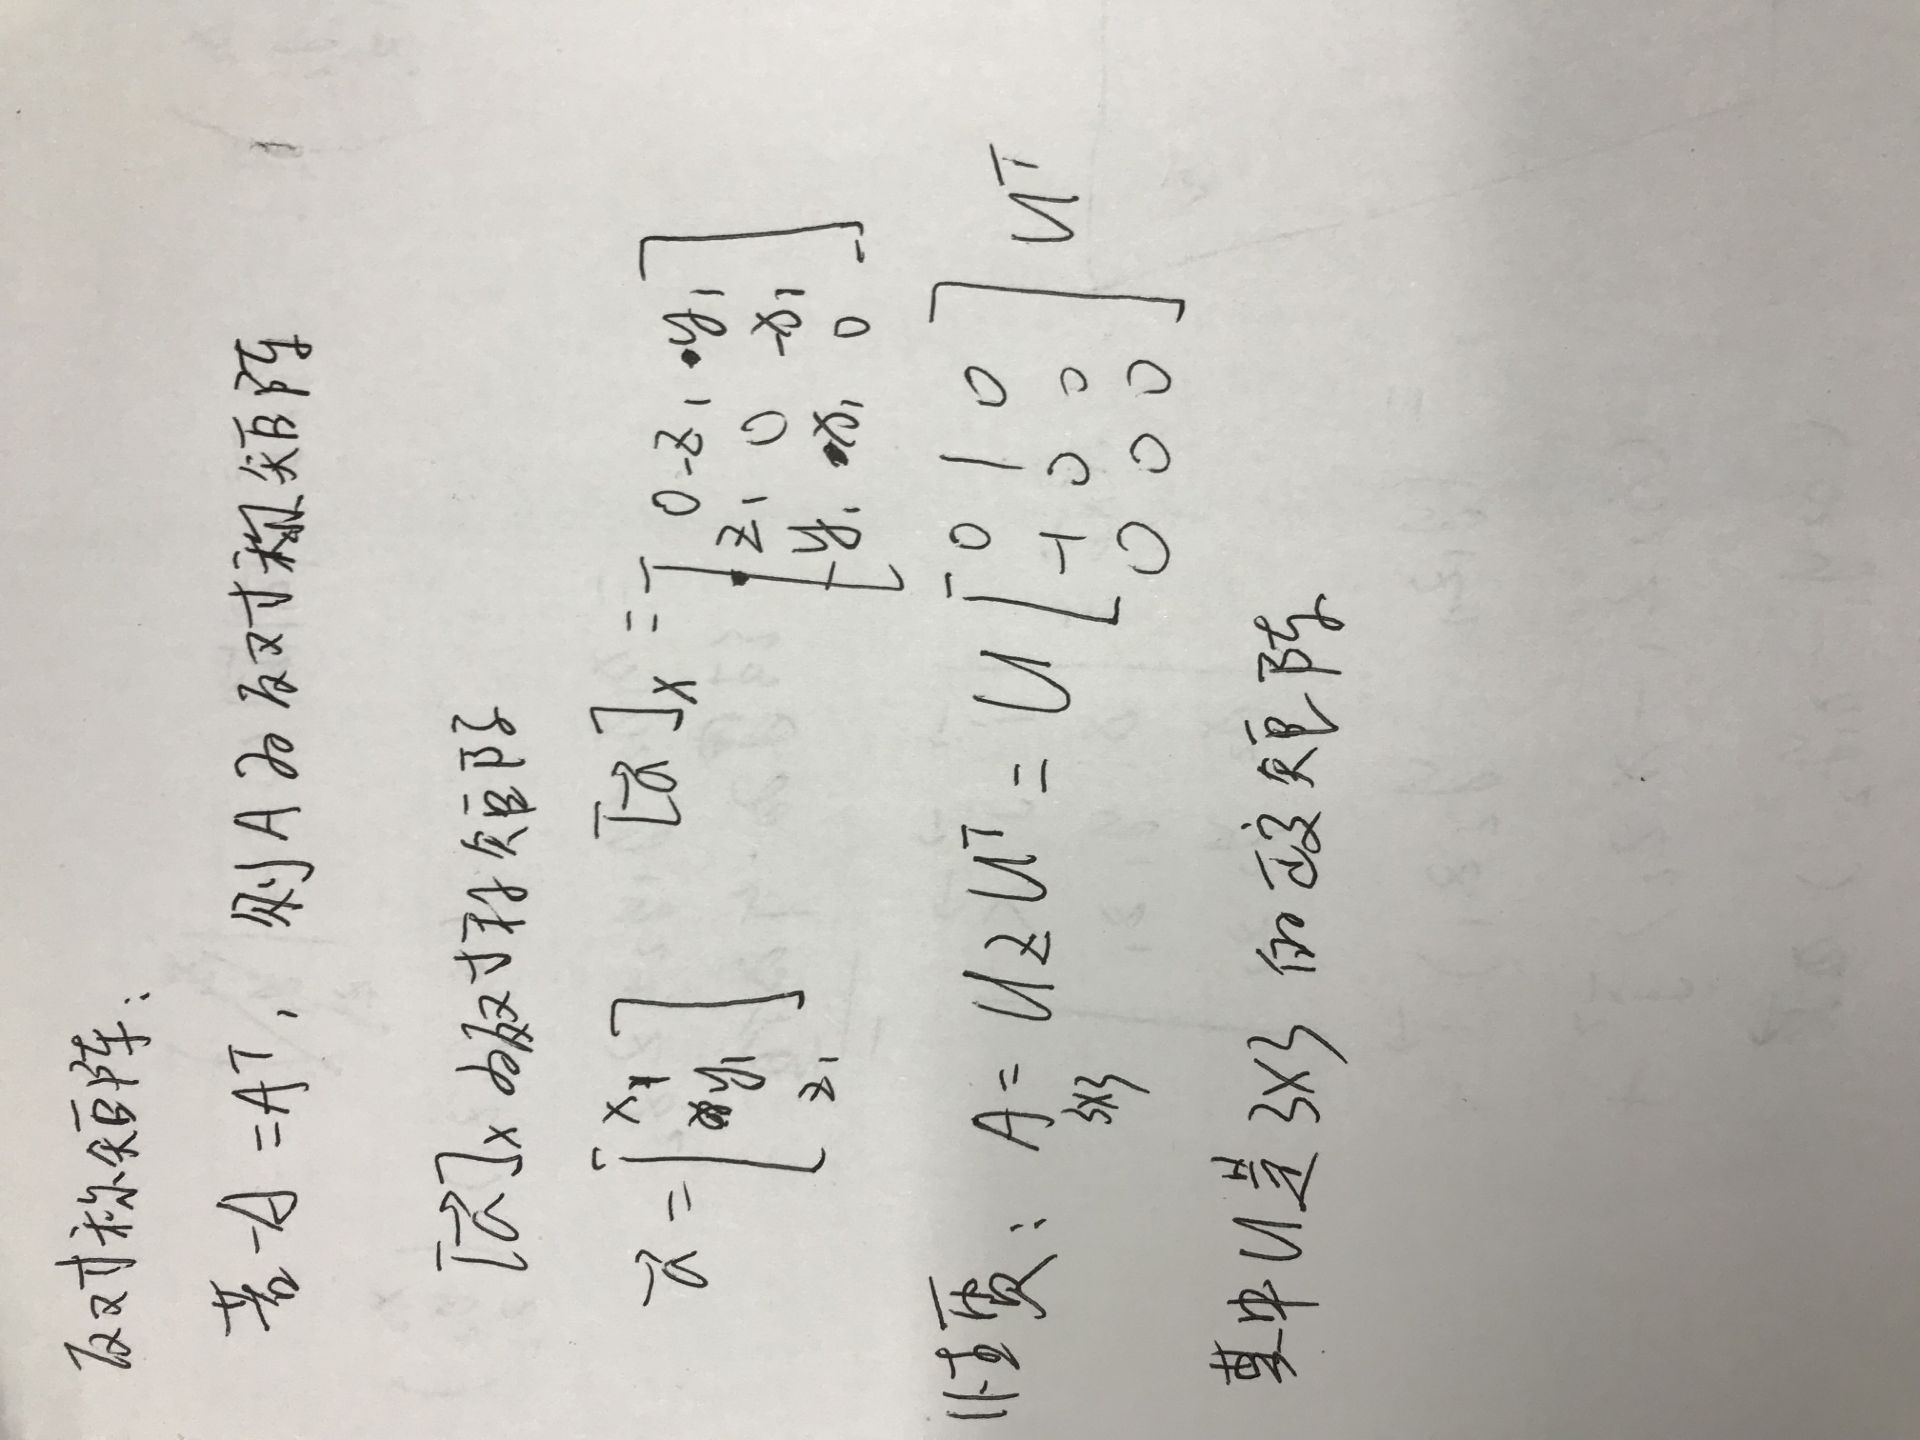 反对称矩阵:
若 -A = A^T, 则 A 为 反对称矩阵
[a⃗]ₓ 为反对称矩阵
a⃗ = [x₁ y₁ z₁] [a⃗]ₓ = [0 -z₁ y₁
z₁ 0 -x₁
-y₁ x₁ 0]
性质: A = U Z U^T = U [0 1 0
3×3 -1 0 0
0 0 0] U^T
其中 U 是 3×3 的正交矩阵